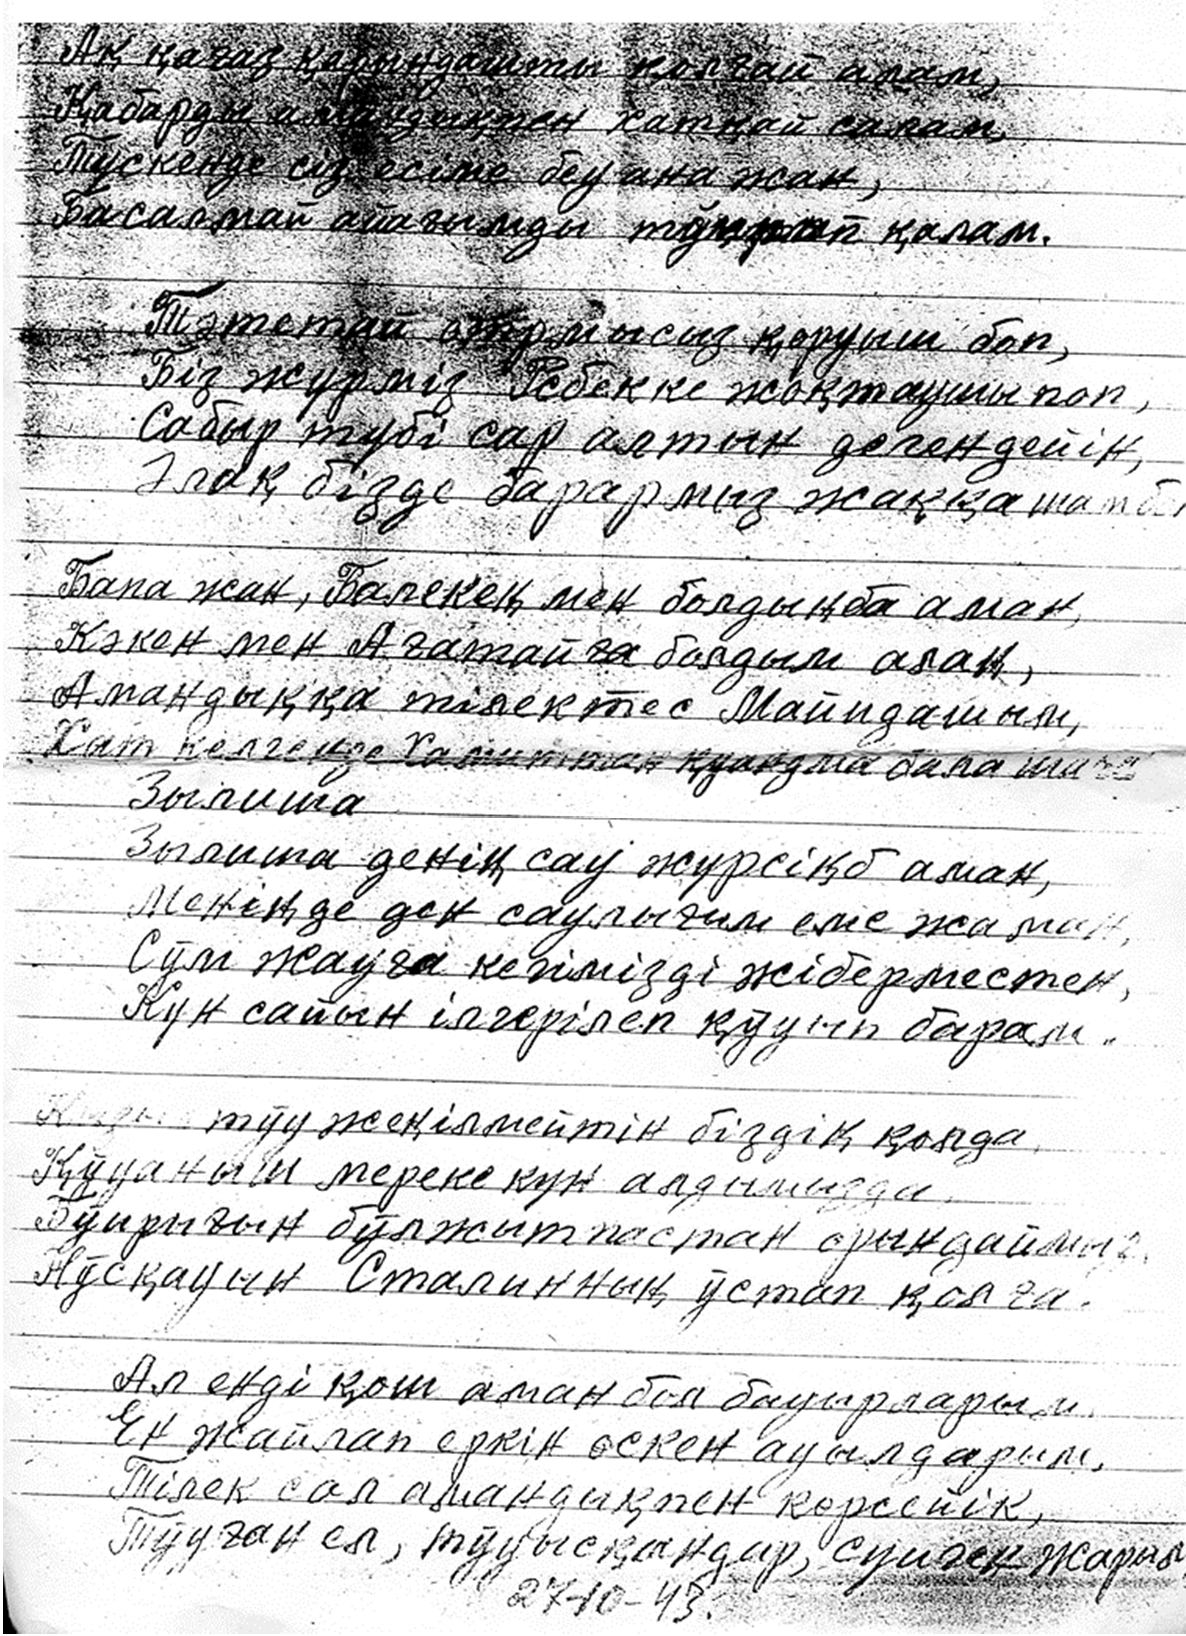 Ақ қағаз қарындашты қолғай алам,
Қабарды амандықпен хатқай салам,
Тускенде сіз есіме беу ана жан,
Басалмай айағымды қалам.
Тәтетай отрмысыз қоруыш боп,
Біз журміз Ребекке жоқтаушы поп,
Сабыр тубі сар алтын дегендейін,
Әлақ бізде барармыз жаққа
Бапа жан, Балекең мен болдыңба аман,
Кәкен мен Ағатайға болдым алаң,
Амандыққа тілектес Майидашым,
Хат келгенде Хамиттан қуандма бала шаға
Зылиша
Зылиша денің сау журсіңб аман,
Меніңде ден саулығым еме жаман,
Сўм жауға кегімізді жіберместен,
Кун сайын ілгерілеп қўуып барам.
тўу жеңілмейтін біздің қолда,
Қўуаныш мереке кун алдымызда.
Бўирығын бўлжытпастан орындаймыз,
Нўсқауын Сталинның ўстап қолға.
Ал енді қош аман бол бауырларым,
Ен жайлап еркін өскен ауылдарым,
Тілек сол амандықпен көрсейік,
Тўуған ел, тўуысқандар, суиген жарым
27-10-43.